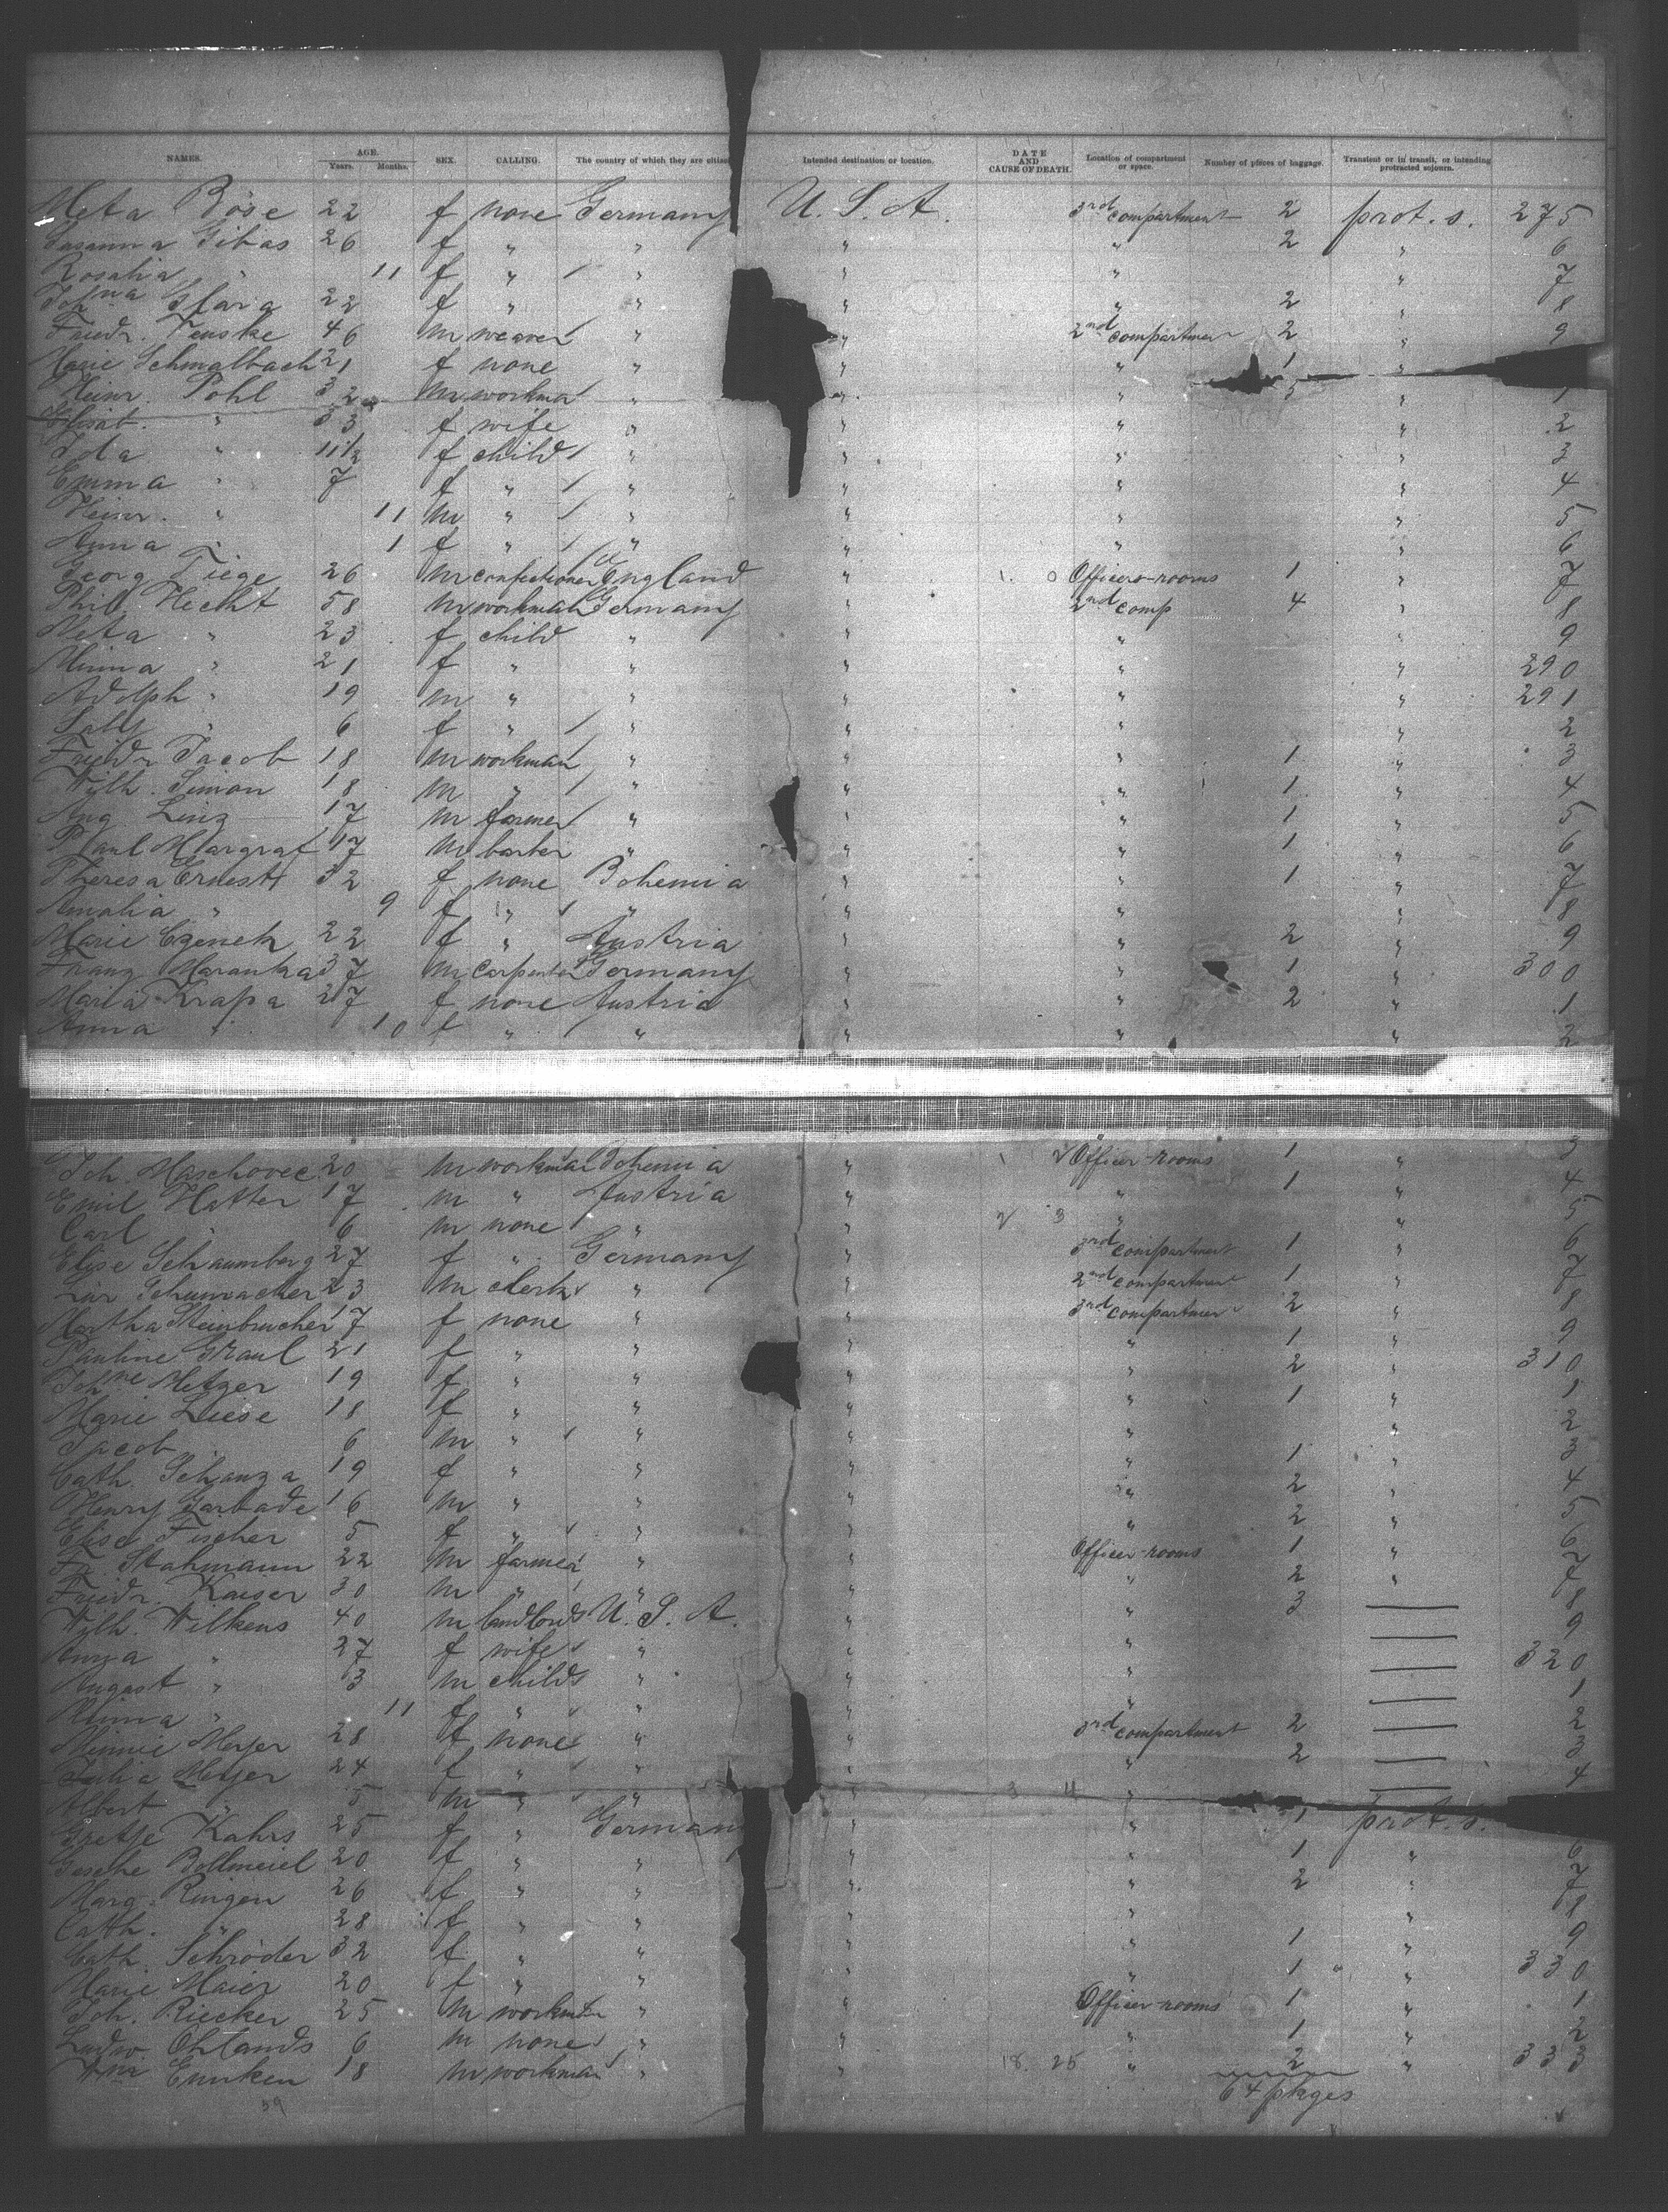 NAMES. AGE. Years. Months. SEX. CALLING. The country of which they are citizens Intended destination or location. DATE AND CAUSE OF DEATH. Location of compartment or space. Number of pieces of baggage. Transient or in transit, or intending protracted sojourn.
Meta Böse 22 f none Germany U. S. A. 3rd compartment 2 prot. s. 275
Susanna Gibas 26 f " " " " 2 " 6
Rosalia " 11 f " " " " " 7
Johna 22 f " " " " 2 " 8
Friedr. Fenske 46 m weaver " " 2nd compartment 2 " 9
Marie Schmalbach 21 f none " " " 1 "
Heinr. Pohl 32 m workma " " " 5 " 1
Elisab. " 33 f wife " " " " 2
Ida " 11½ f child " " " " 3
Emma " 7 f " " " " " 4
Heinr. " 11 m " " " " " 5
Anna " 1 f " " " " " 6
Georg Tiege 26 m confectioner England " Officers-rooms 1 " 7
Phil. Hecht 58 m workman Germany " 2nd comp 4 " 8
Meta " 23 f child " " " " 9
Minna " 21 f " " " " " 290
Adolph " 19 m " " " " " 291
Sally " 6 f " " " " " 2
Friedr Jacob 18 m workman " " " 1 " 3
Wilh. Simon 18 m " " " " 1 " 4
Aug Linz 17 m farmer " " " 1 " 5
Paul Margraf 17 m barber " " " 1 " 6
Theresa Ernest 32 f none Bohemia " " 1 " 7
Amalia " 9 f " " " " " 8
Marie Czenek 22 f " Austria " " 2 " 9
Franz Maranka 37 m carpenter Germany " " 1 " 300
Maria Krapa 27 f none Austria " " 2 " 1
Anna " 10 f " " " " " 2
Joh. Maschovec 20 m workman Bohemia " Officer-rooms 1 " 3
Emil Hatter 17 m " Austria " " 1 " 4
Carl " 6 m none " " 2 3 " " 5
Elise Schaumberg 27 f " Germany " 3rd compartment 1 " 6
Schumacher 23 m clerk " " 2nd compartment 1 " 7
Martha Steinbrucher 17 f none " " 3rd compartment 2 " 8
Pauline Graul 21 f " " " " 1 " 9
Johne Metzer 19 f " " " " 2 " 310
Marie Liese 18 f " " " " 1 " 1
Jacob " 6 m " " " " " 2
Cath. Schanza 19 f " " " " 1 " 3
Henry Garbade 16 m " " " " 2 " 4
Elise Fischer 5 f " " " " 2 " 5
Fr. Stahmann 22 m farmer " " Officer-rooms 1 " 6
Friedr. Kaiser 30 m " " " " 2 " 7
Wilh. Wilkens 40 m landlord U. S. A. " " 3 — 8
Anna " 27 f wife " " " — 9
August " 3 m child " " " — 320
Minna " 11 f " " " " — 1
Minnie Meyer 28 f none " " 3rd compartment 2 — 2
Julia Meyer 24 f " " " " 2 — 3
Albert " 5 m " " " 3 4 " — 4
Gretje Kahrs 25 f " German " " 1 prot. s.
Gesche Bollmeiel 20 f " " " " 1 " 6
Marg. Ringen 26 f " " " " 2 " 7
Cath. " 28 f " " " " " 8
Cath. Schröder 32 f " " " " 1 " 9
Marie Maier 20 f " " " " 1 " 330
Joh. Riecker 25 m workman " " Officer-rooms 1 " 1
Ludw. Ohlands 6 m none " " " 1 " 2
Enniken 18 m workman " " 18. 25 " 2 " 333
59 64 pkges